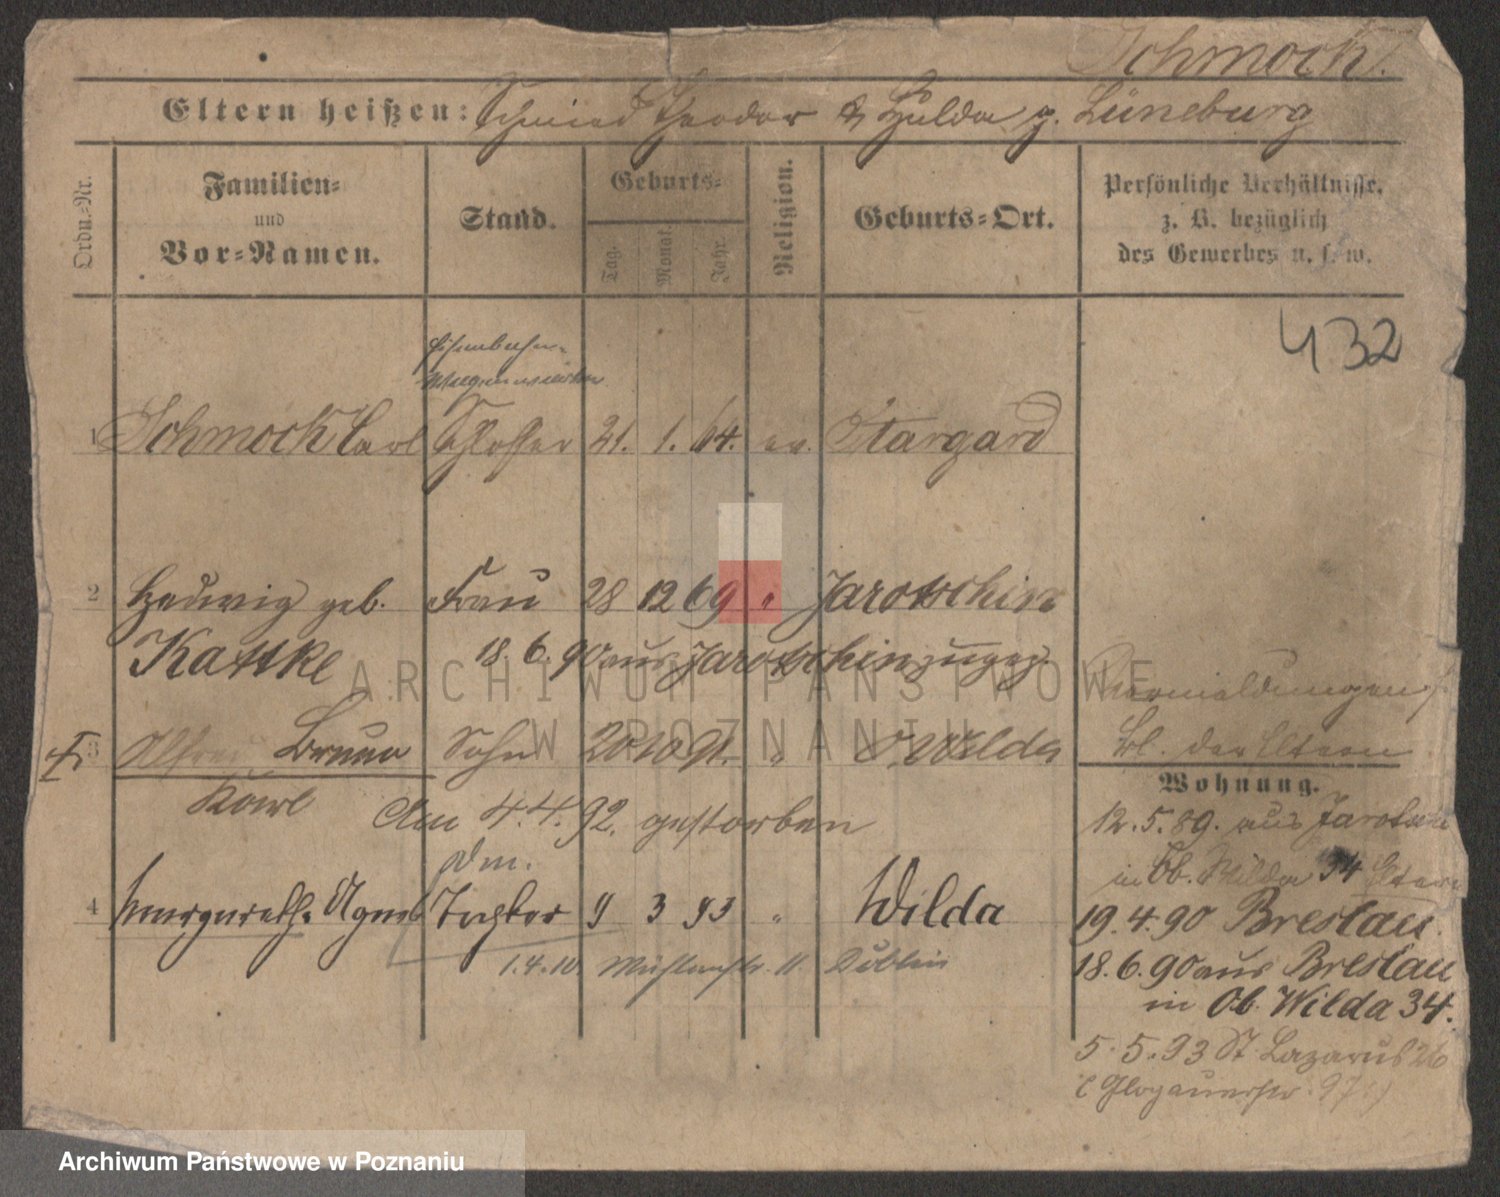 Schmock.
Eltern heißen: Schmied Theodor & Hulda g. Lüneburg
Ordn.-Nr.
Familien-
und
Vor-Namen.
Stand.
Geburts-
Tag.
Monat.
Jahr.
Religion.
Geburts-Ort.
Persönliche Verhältnisse,
z. B. bezüglich
des Gewerbes u. s. w.
432
Eisenbahn-
1 Schmock Carl Schlosser 21. 1. 64. ev. Stargard
2 Hedwig geb. Frau 28 12 69 " Jarotschin
Kattke 18. 6. 90 aus Jarotschin zugez.
3 Alfred Bruno Sohn 20 10 91. " O Wilda
Karl
Am 4. 4. 92. gestorben
Bl. der Eltern
Wohnung.
12. 5. 89. aus
in Ob. Wilda 34 Eltern
4 Margareth. Agnes Tochter 9 3 93 " Wilda
1. 4. 10. 11
19. 4. 90 Breslau.
18. 6. 90 aus Breslau
in Ob. Wilda 34.
5. 5. 93 St. Lazarus 26
(Glogauerstr. 97.)
ARCHIWUM PAŃSTWOWE
W POZNANIU
Archiwum Państwowe w Poznaniu